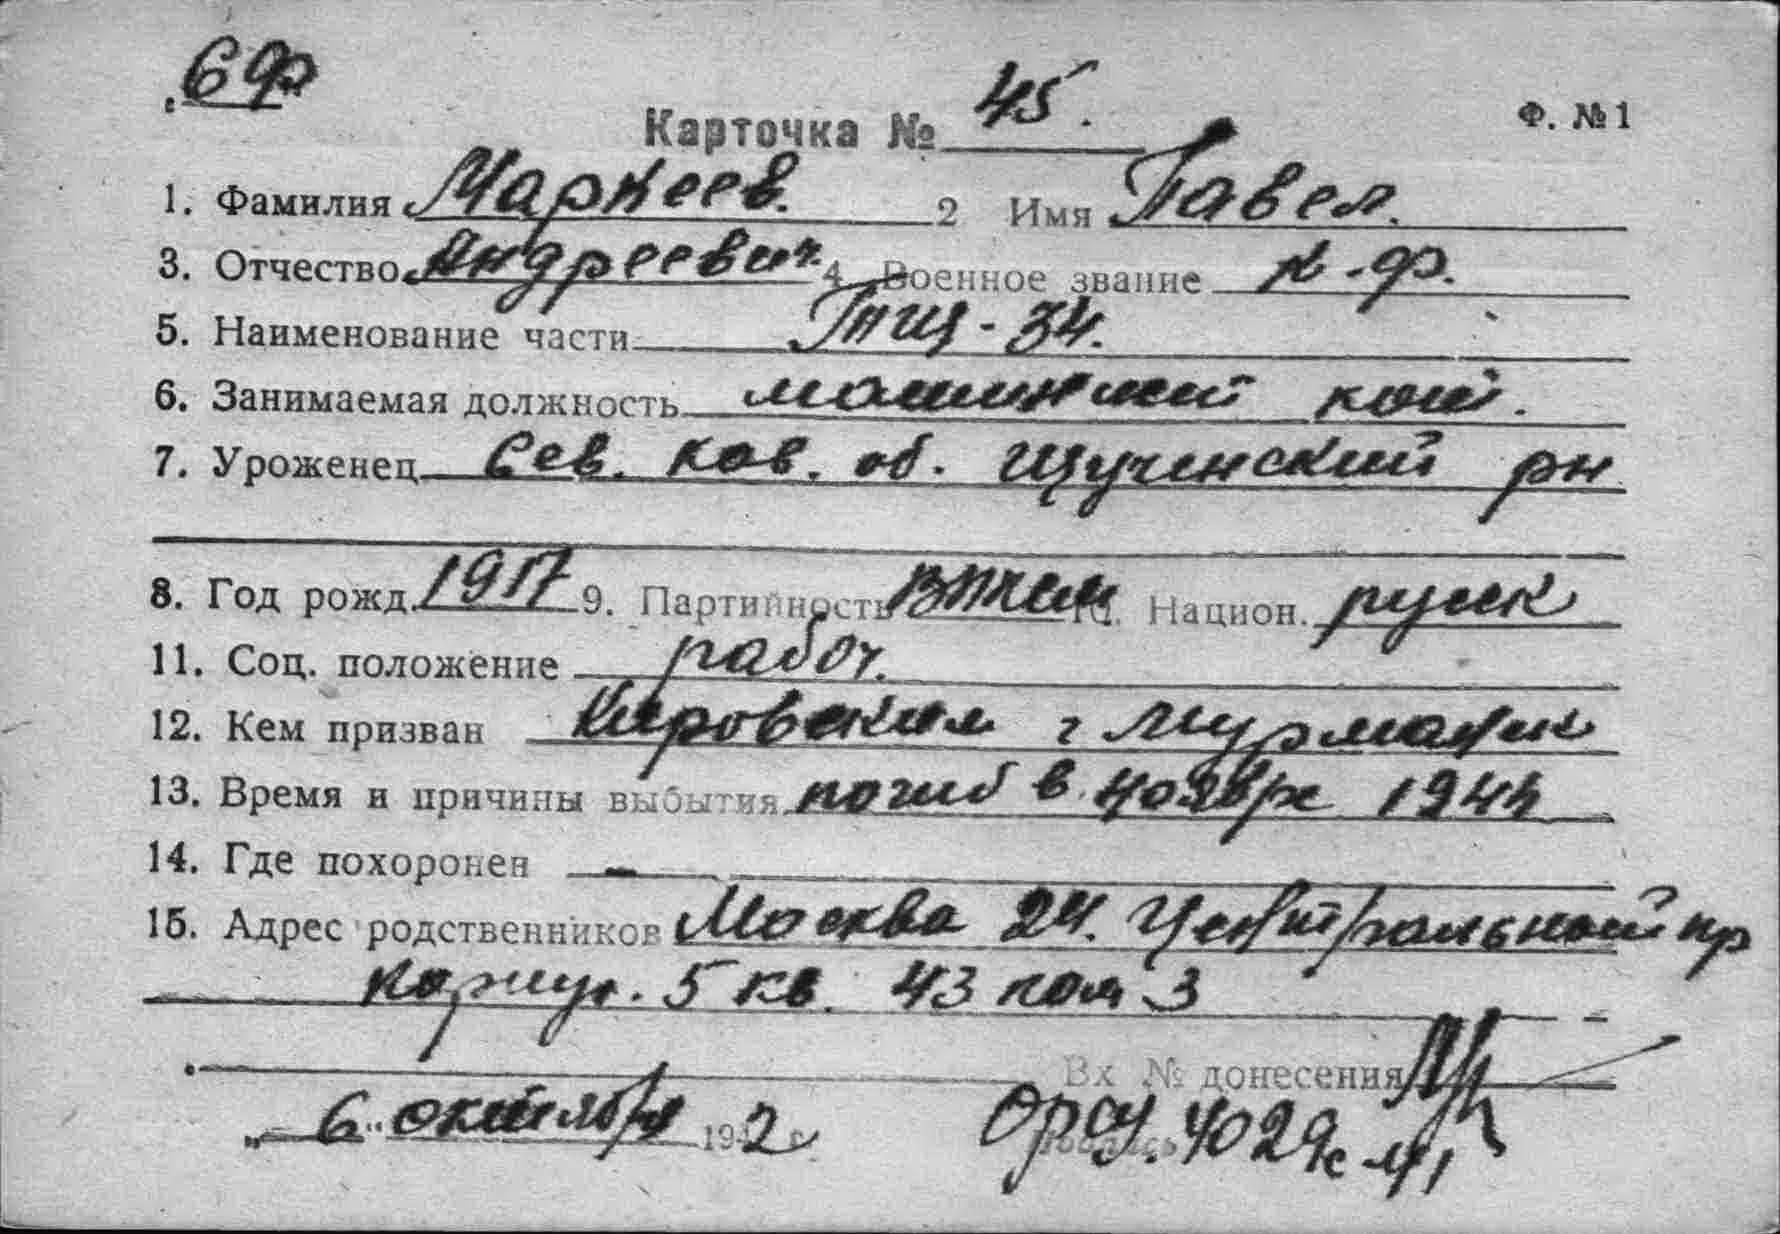 СФ
Карточка № 45. Ф. № 1
1. Фамилия Маркеев. 2 Имя Павел.
3. Отчество Андреевич. 4. Военное звание к.ф.
5. Наименование части ТЩ-34.
6. Занимаемая должность машинный
7. Уроженец Сев. Кав. об. Щученский рн
8. Год рожд. 1917 9. Партийность 10. Национ. русск
11. Соц. положение рабоч.
12. Кем призван Кировским г Мурманск
13. Время и причины выбытия погиб в ноябре 1944
14. Где похоронен –
15. Адрес родственников Москва 24. Центральный пр
Корпус. 5 кв. 43 ком 3
Вх № донесения
„6" октября 1942 г. ОРСУ. 4029с